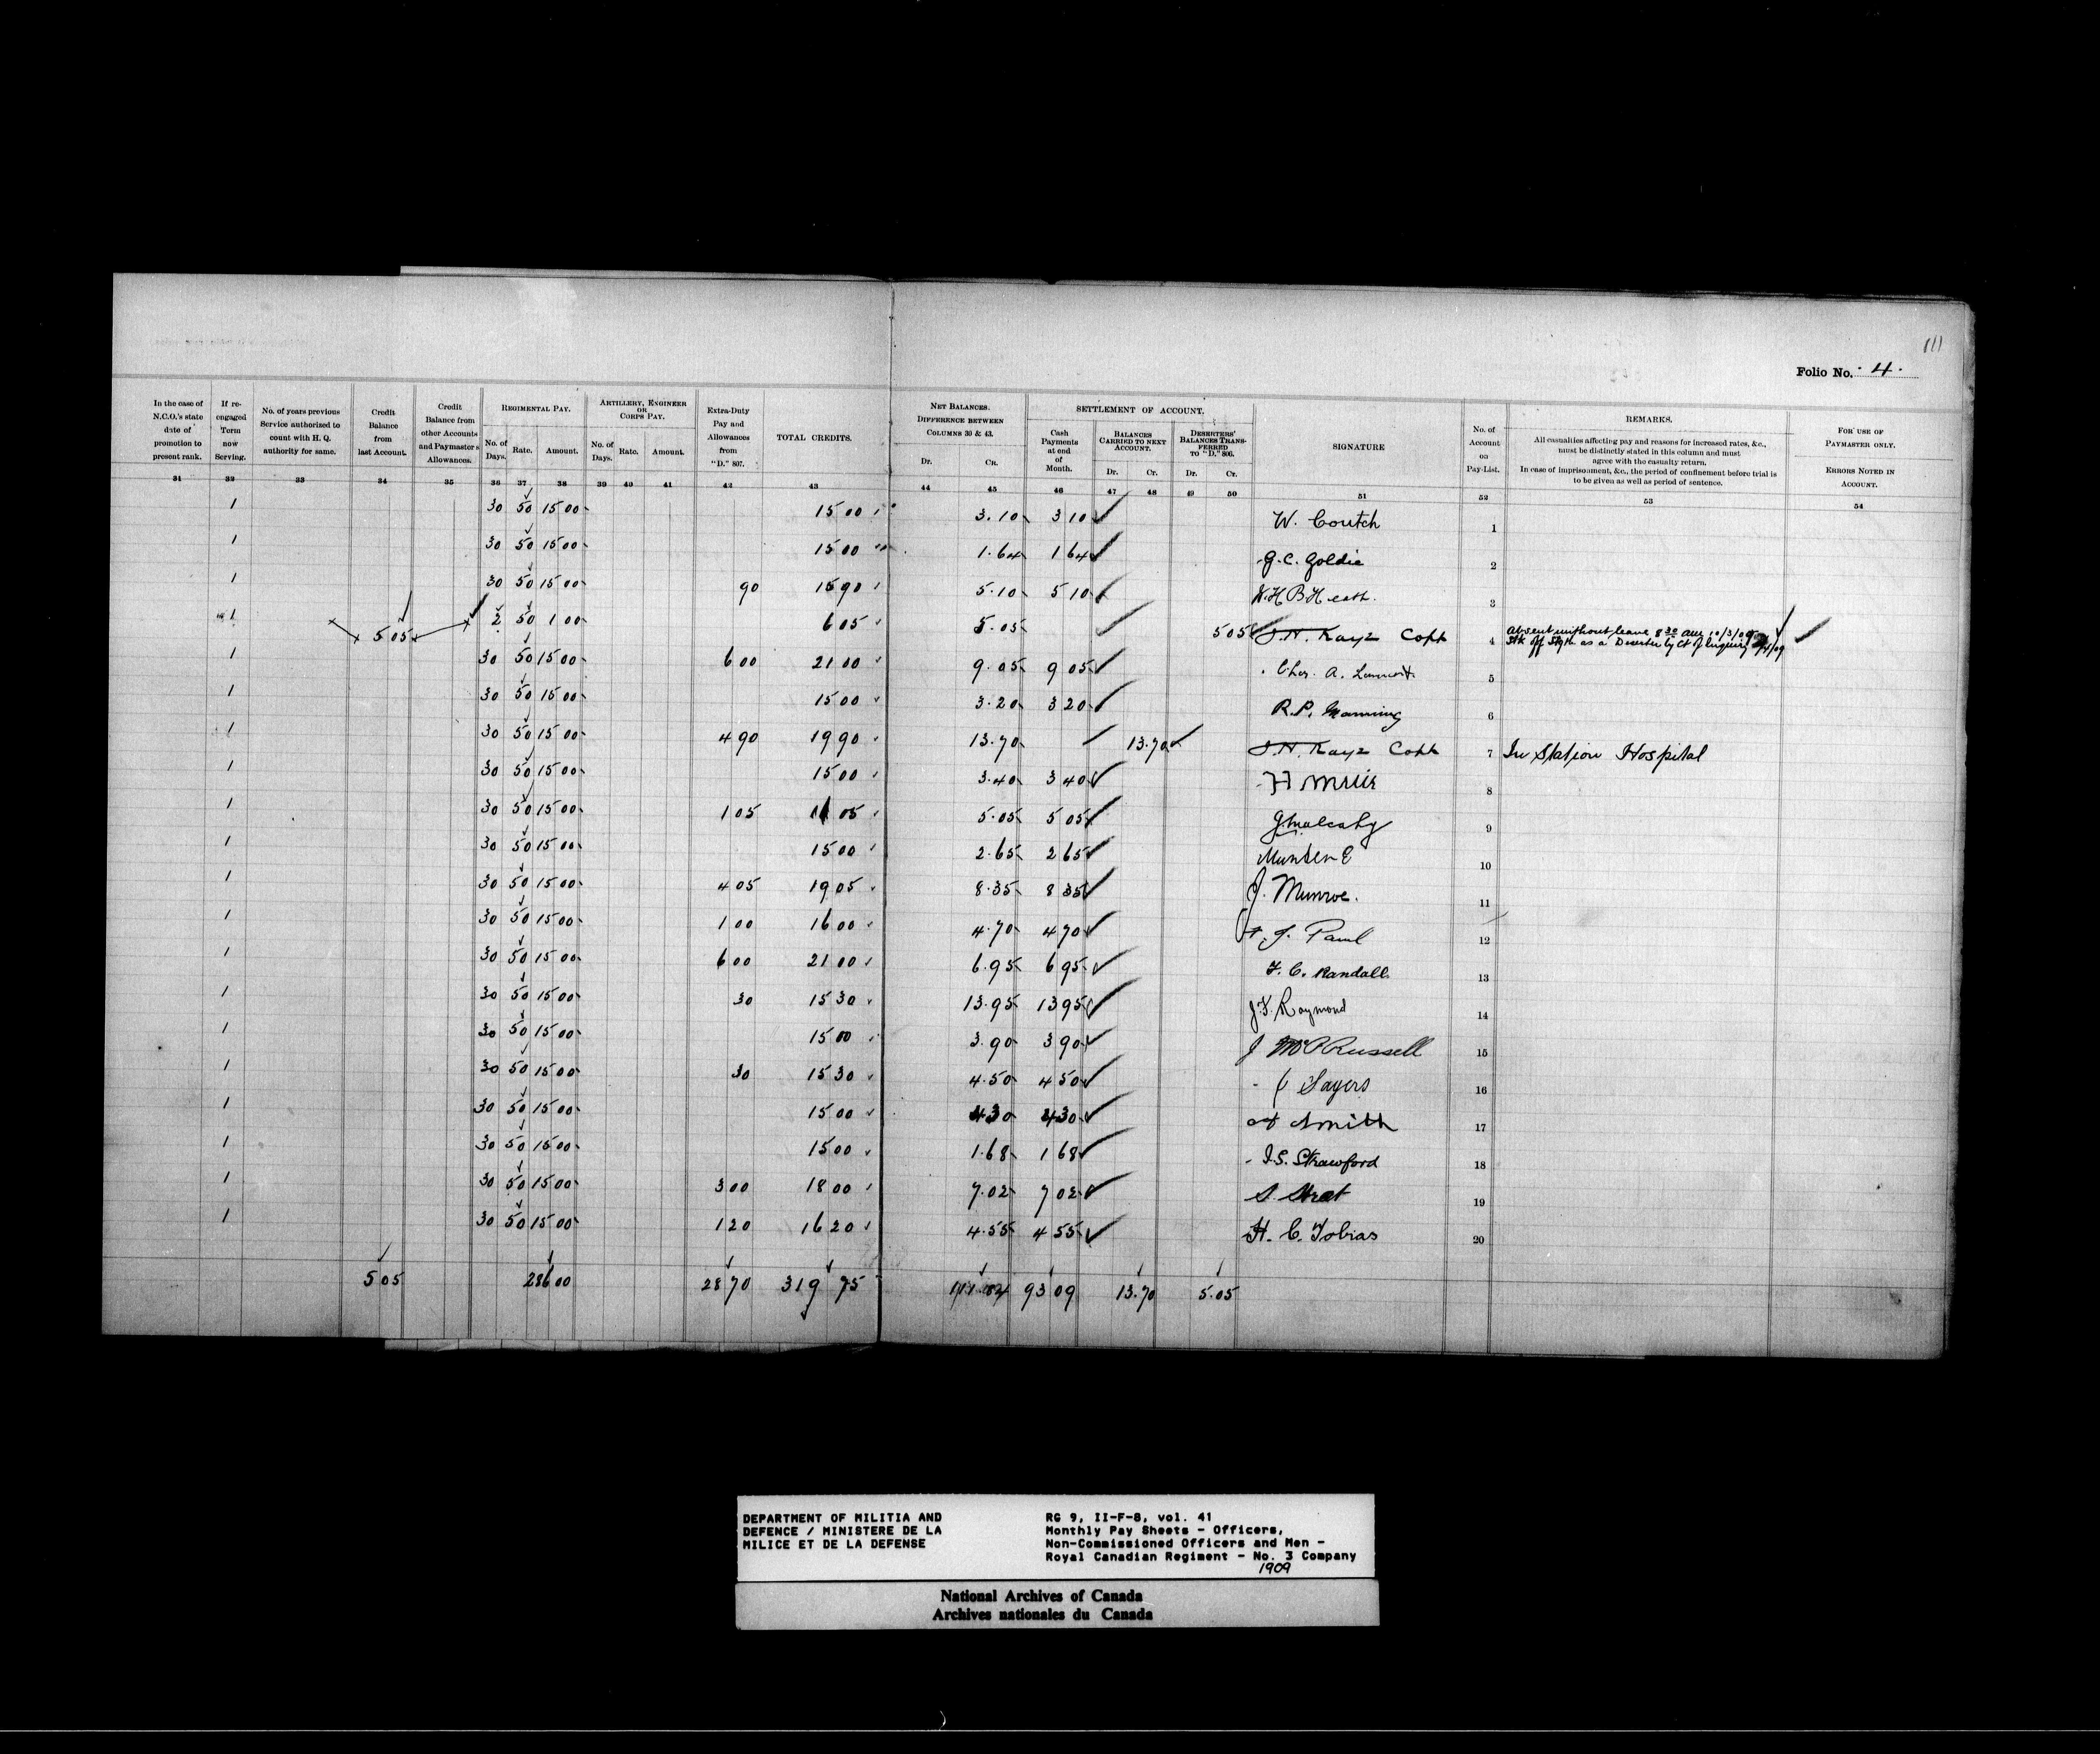 111
Folio No. 4.
In the case of N.C.O.'s state date of promotion to present rank.
If re-engaged Term now Serving.
No. of years previous Service authorized to count with H. Q. authority for same.
Credit Balance from last Account.
Credit Balance from other Accounts and Paymaster's Allowances.
REGIMENTAL PAY.
No. of Days. Rate. Amount.
ARTILLERY, ENGINEER OR CORPS PAY.
No. of Days. Rate. Amount.
Extra-Duty Pay and Allowances from "D." 807.
TOTAL CREDITS.
NET BALANCES. DIFFERENCE BETWEEN COLUMNS 30 & 43.
Dr. Cr.
SETTLEMENT OF ACCOUNT.
Cash Payments at end of Month.
BALANCES CARRIED TO NEXT ACCOUNT.
Dr. Cr.
DESERTERS' BALANCES TRANSFERRED TO "D." 806.
Dr. Cr.
SIGNATURE
No. of Account on Pay-List.
REMARKS.
All casualties affecting pay and reasons for increased rates, &c., must be distinctly stated in this column and must agree with the casualty return.
In case of imprisonment, &c., the period of confinement before trial is to be given as well as period of sentence.
FOR USE OF PAYMASTER ONLY.
ERRORS NOTED IN ACCOUNT.
31 32 33 34 35 36 37 38 39 40 41 42 43 44 45 46 47 48 49 50 51 52 53 54
1 30 50 15 00 15 00 3.10 3 10 W. Coutch 1
1 30 50 15 00 15 00 1.64 1 64 G. C. Goldie 2
1 30 50 15 00 90 15 90 5.10 5 10 W. H. B. Heath. 3
1 5 05 2 50 1 00 6 05 5.05 5 05 J. H. Kaye Capt 4 Absent without leave 8 30 10/3/09
Stk off Stgth as a Deserter by Ct of Inquiry
1 30 50 15 00 6 00 21 00 9.05 9 05 Chas. A. 5
1 30 50 15 00 15 00 3.20 3 20 R. P. Manning 6
1 30 50 15 00 4 90 19 90 13.70 13.70 J. H. Kaye Capt 7 In Station Hospital
1 30 50 15 00 15 00 3.40 3 40 H Muir 8
1 30 50 15 00 1 05 16 05 5.05 5 05 J Mulcahy 9
1 30 50 15 00 15 00 2.65 2 65 Munden E 10
1 30 50 15 00 4 05 19 05 8.35 8 35 J. Munroe. 11
1 30 50 15 00 1 00 16 00 4.70 4 70 J. Paul 12
1 30 50 15 00 6 00 21 00 6.95 6 95 F. C. Randall 13
1 30 50 15 00 30 15 30 13.95 13 95 J. F. Raymond 14
1 30 50 15 00 15 00 3.90 3 90 J McP Russell 15
1 30 50 15 00 30 15 30 4.50 4 50 Sayers 16
1 30 50 15 00 15 00 4 30 4 30 Smith 17
1 30 50 15 00 15 00 1.68 1 68 J. S. Strawford 18
1 30 50 15 00 3 00 18 00 7.02 7 02 S. 19
1 30 50 15 00 1 20 16 20 4.55 4 55 H. C. Tobias 20
5 05 286 00 28 70 319 75 111.84 93 09 13.70 5.05
DEPARTMENT OF MILITIA AND
DEFENCE / MINISTERE DE LA
MILICE ET DE LA DEFENSE
RG 9, II-F-8, vol. 41
Monthly Pay Sheets - Officers,
Non-Commissioned Officers and Men -
Royal Canadian Regiment - No. 3 Company
1909
National Archives of Canada
Archives nationales du Canada